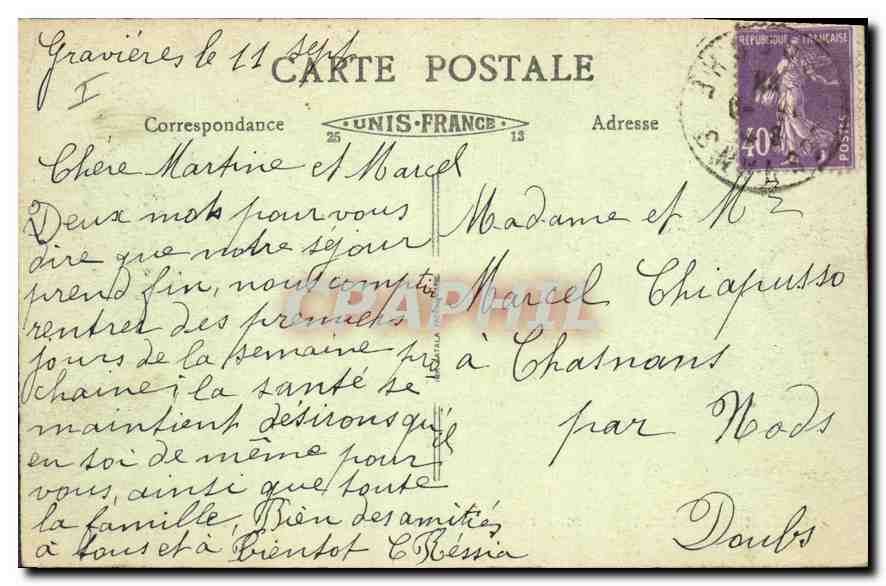 Gravières le 11 sept
I
CARTE POSTALE
Correspondance
25 UNIS-FRANCE 13
Adresse
RÉPUBLIQUE FRANÇAISE
40
POSTES
Chère Martine et Marcel
Deux mots pour vous
dire que notre séjour
prend fin, nous comptir
rentrer des premiers
jours de la semaine pro
chaine, la santé se
maintient désirons qu'il
en soi de même pour
vous, ainsi que toute
la famille, Bien des amitiés
à tous et à Bientot C Réssia
Madame et Mr
Marcel Chiapusso
à Chasnans
par Nods
Doubs
CPAPHIL